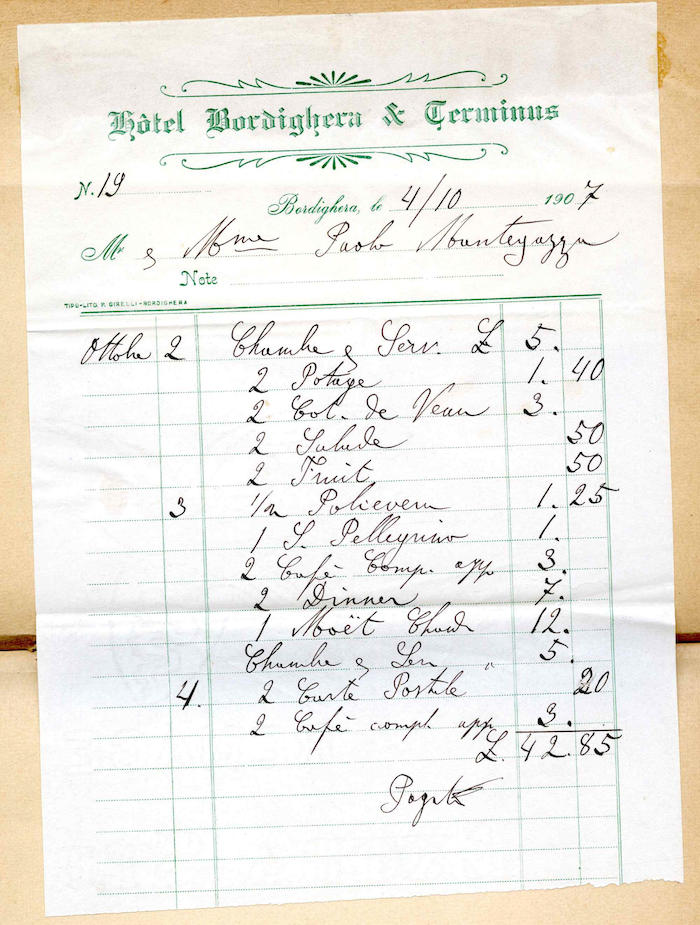 Hôtel Bordighera & Terminus
N. 19
Bordighera, le 4/10 1907
Mr & Mme Paolo Mantegazza
Note
TIPO-LITO. P. GIBELLI-BORDIGHERA
Ottobe 2 Chambe & Serv. £ 5.
2 Potage 1. 40
2 Cot. de Veau 3.
2 Salade 50
2 Fruit 50
3 1/2 Polcevera 1. 25
1 S. Pellegrino 1.
2 Café Comp. app 3.
2 Dinner 7.
1 Moët Chand 12.
Chambe & Serv " 5.
4. 2 Carte Postale 20
2 Café compl app 3.
£. 42.85